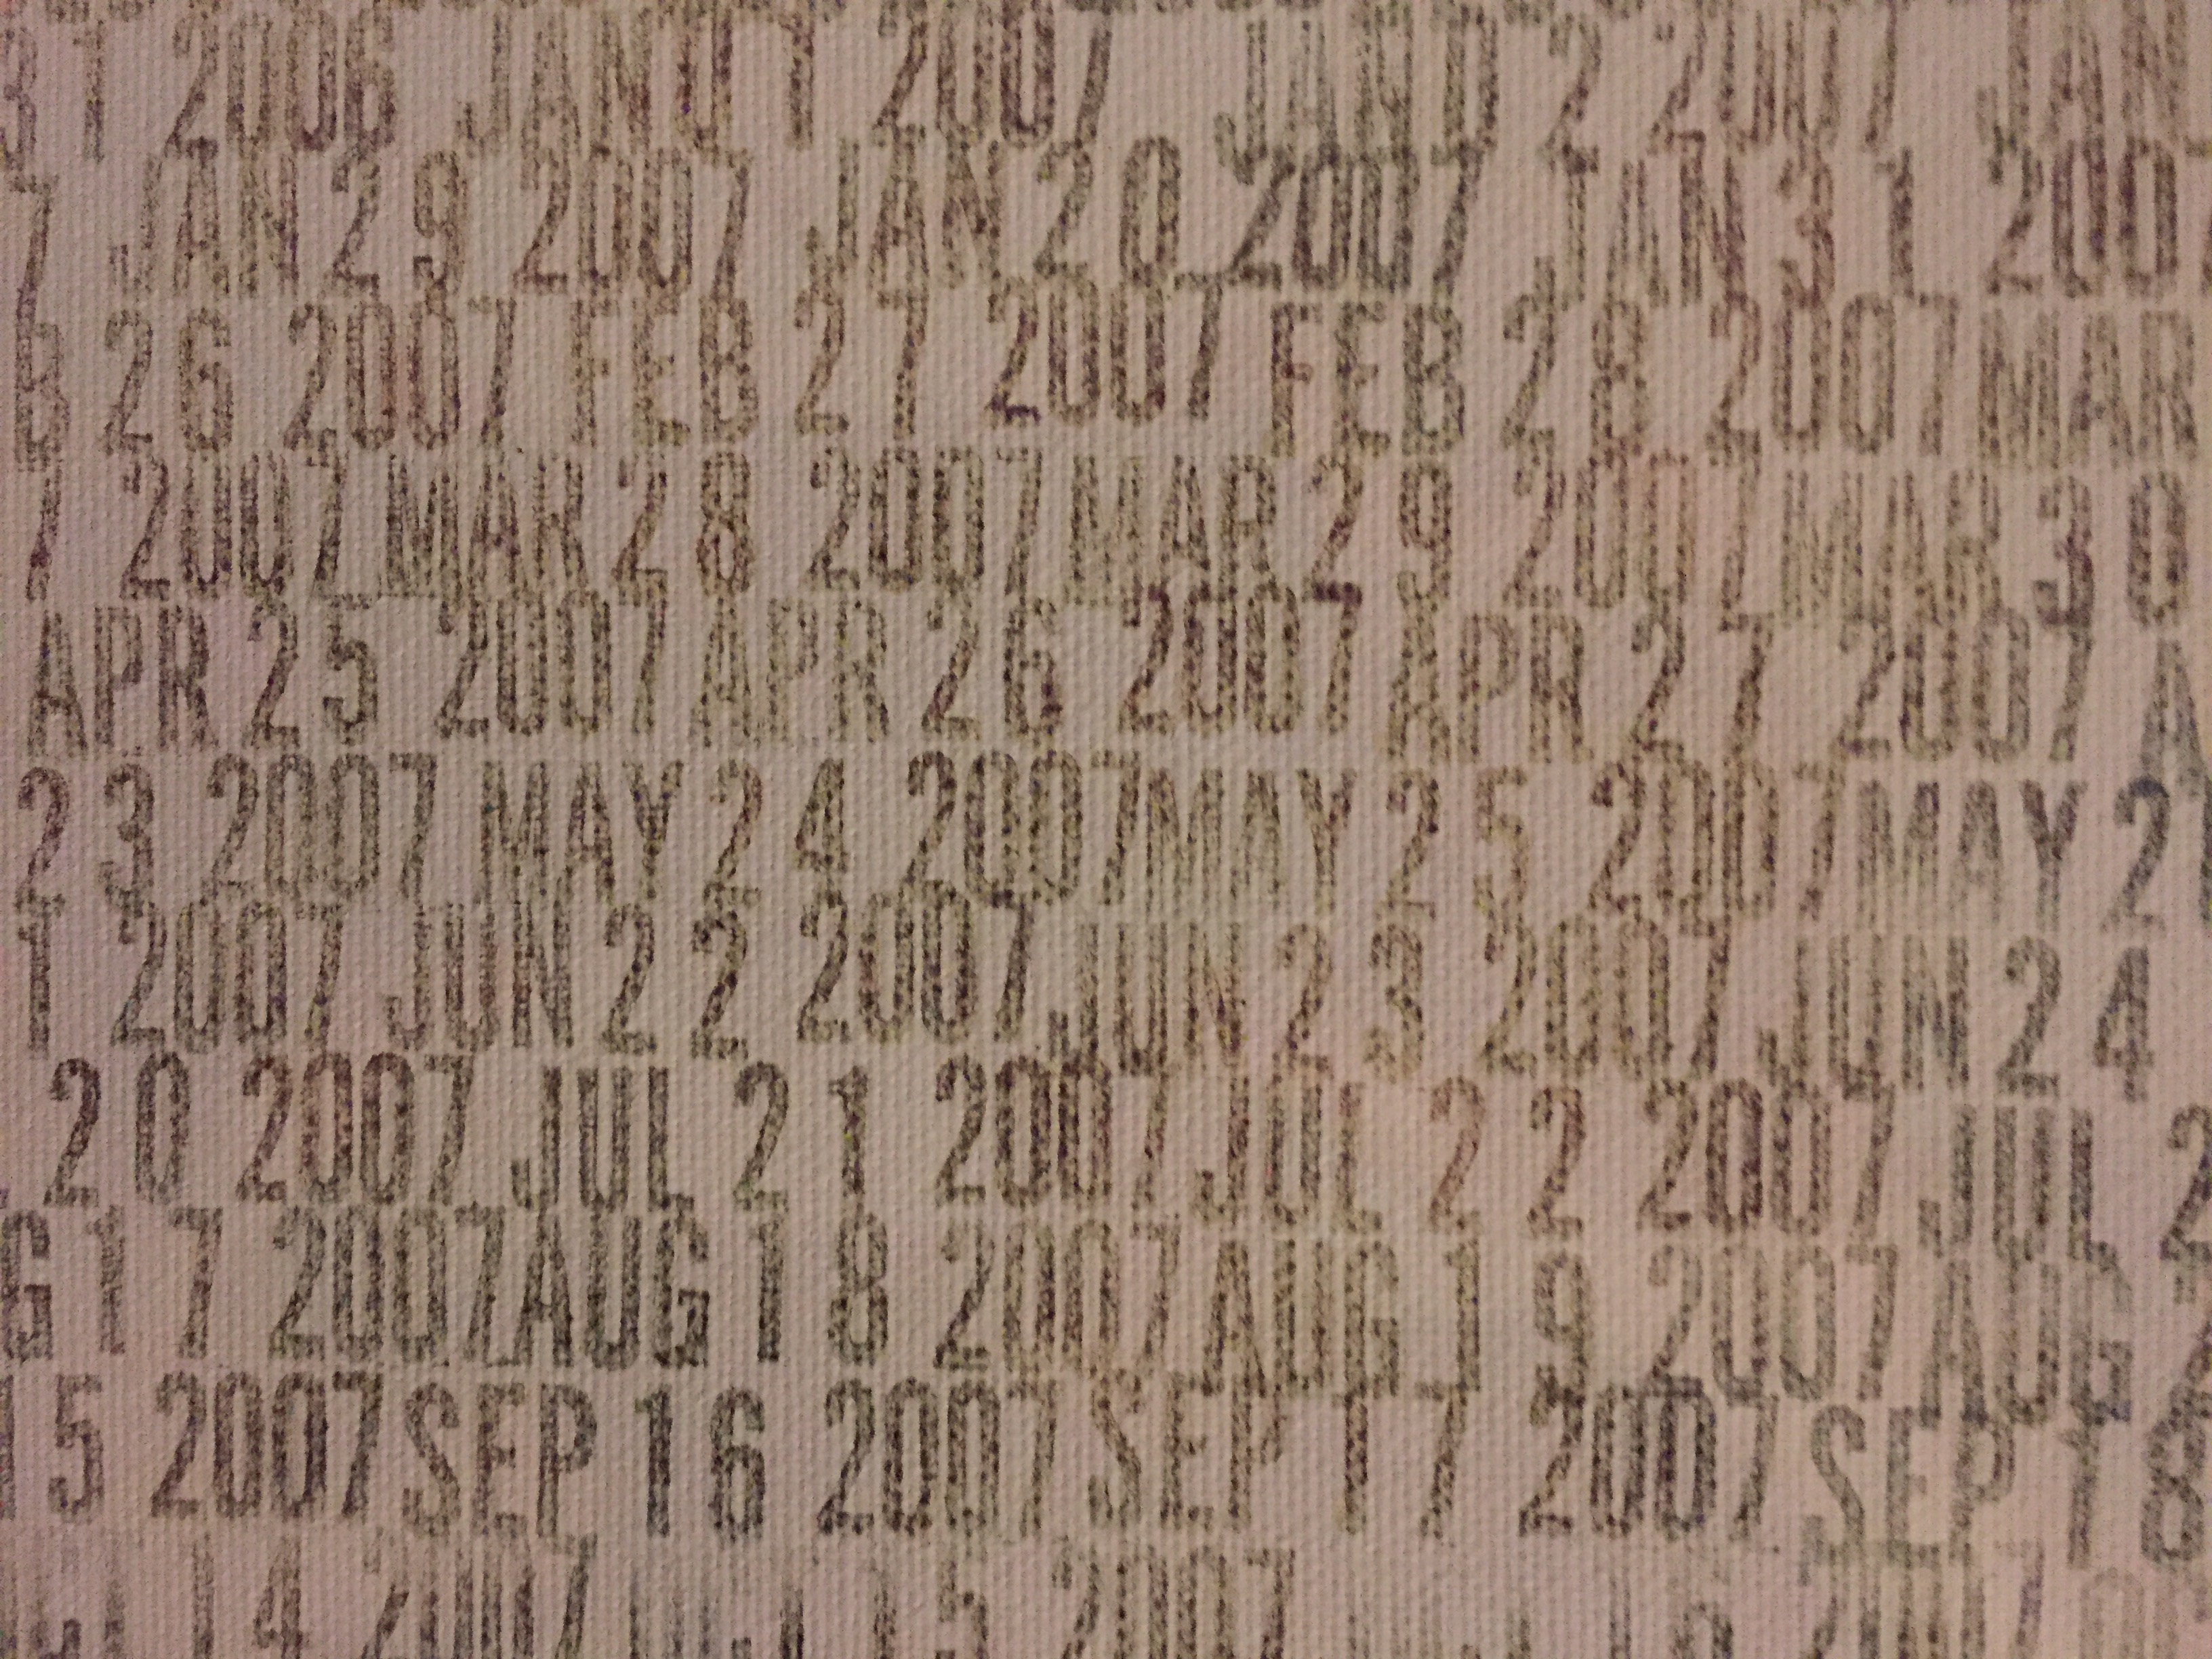 31 2006 JAN 01 2007 JAN 02 2007 JAN
7 JAN 29 2007 JAN 20 2007 JAN 31 200
B 26 2007 FEB 27 2007 FEB 28 2007 MAR
7 2007 MAR 28 2007 MAR 29 2007 MAR 30
APR 25 2007 APR 26 2007 APR 27 2007 A
23 2007 MAY 24 2007 MAY 25 2007 MAY 2
1 2007 JUN 22 2007 JUN 23 2007 JUN 24
20 2007 JUL 21 2007 JUL 22 2007 JUL 2
G 17 2007 AUG 18 2007 AUG 19 2007 AUG 2
15 2007 SEP 16 2007 SEP 17 2007 SEP 18
14 2007 15 2007